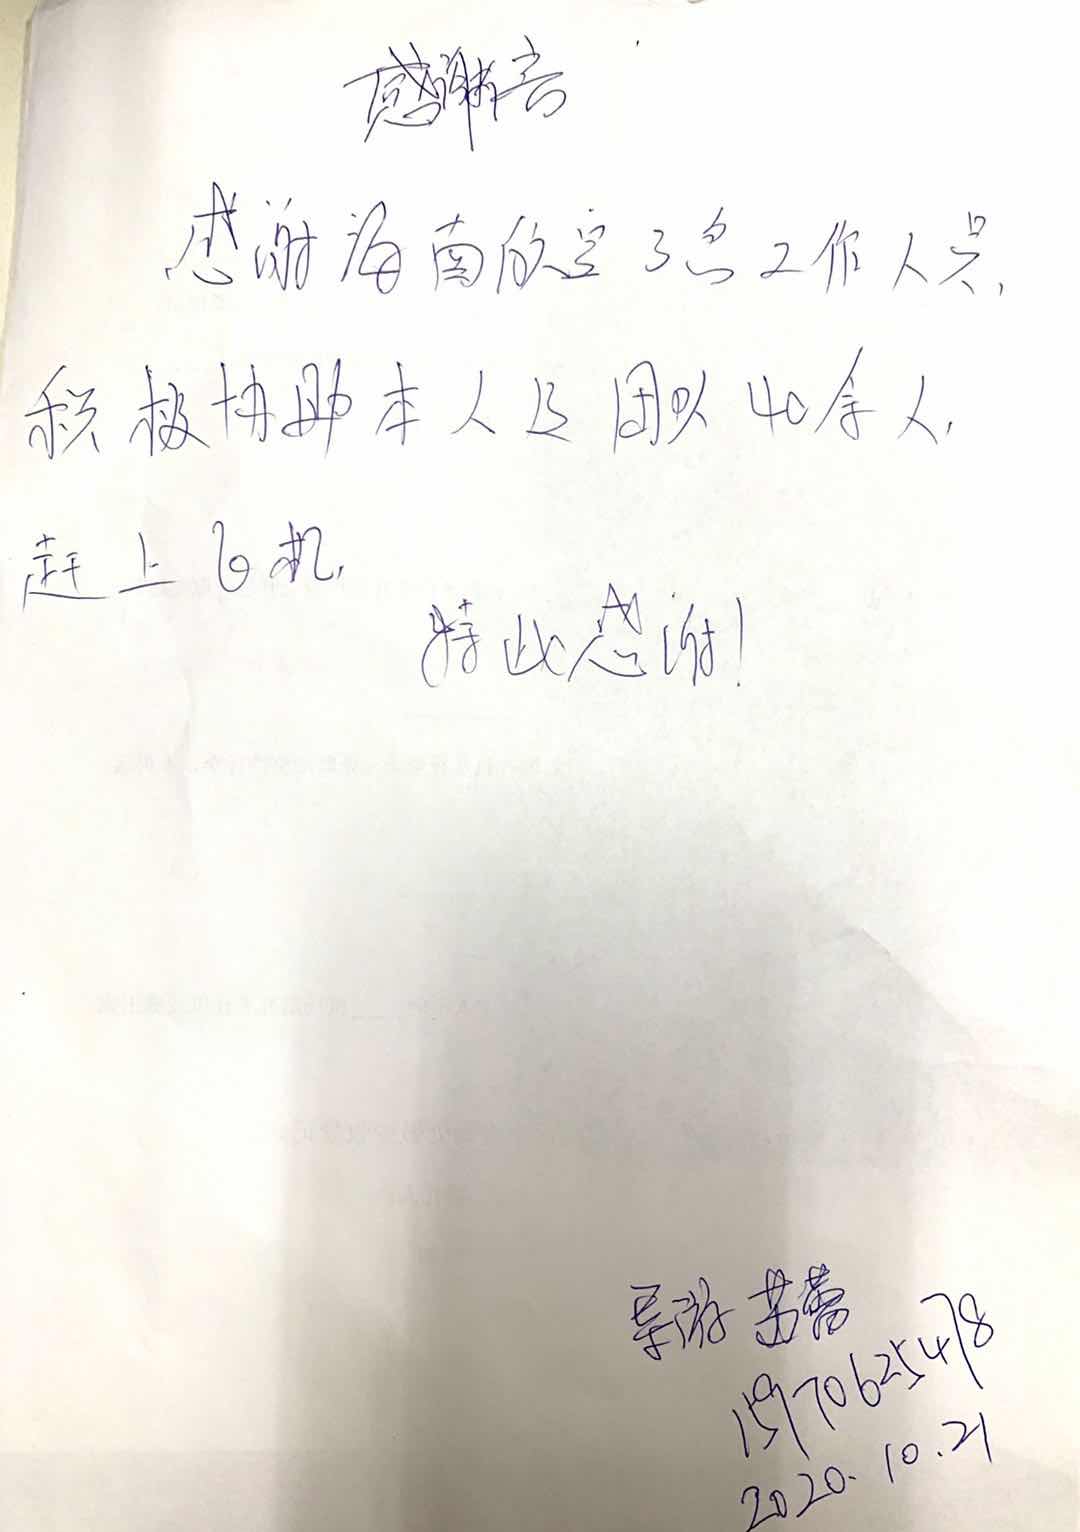 感谢信
感谢海南航空3名工作人员,
积极协助本人及团队40余人,
赶上飞机,
特此感谢!
导游 苗蕾
15970625478
2020.10.21